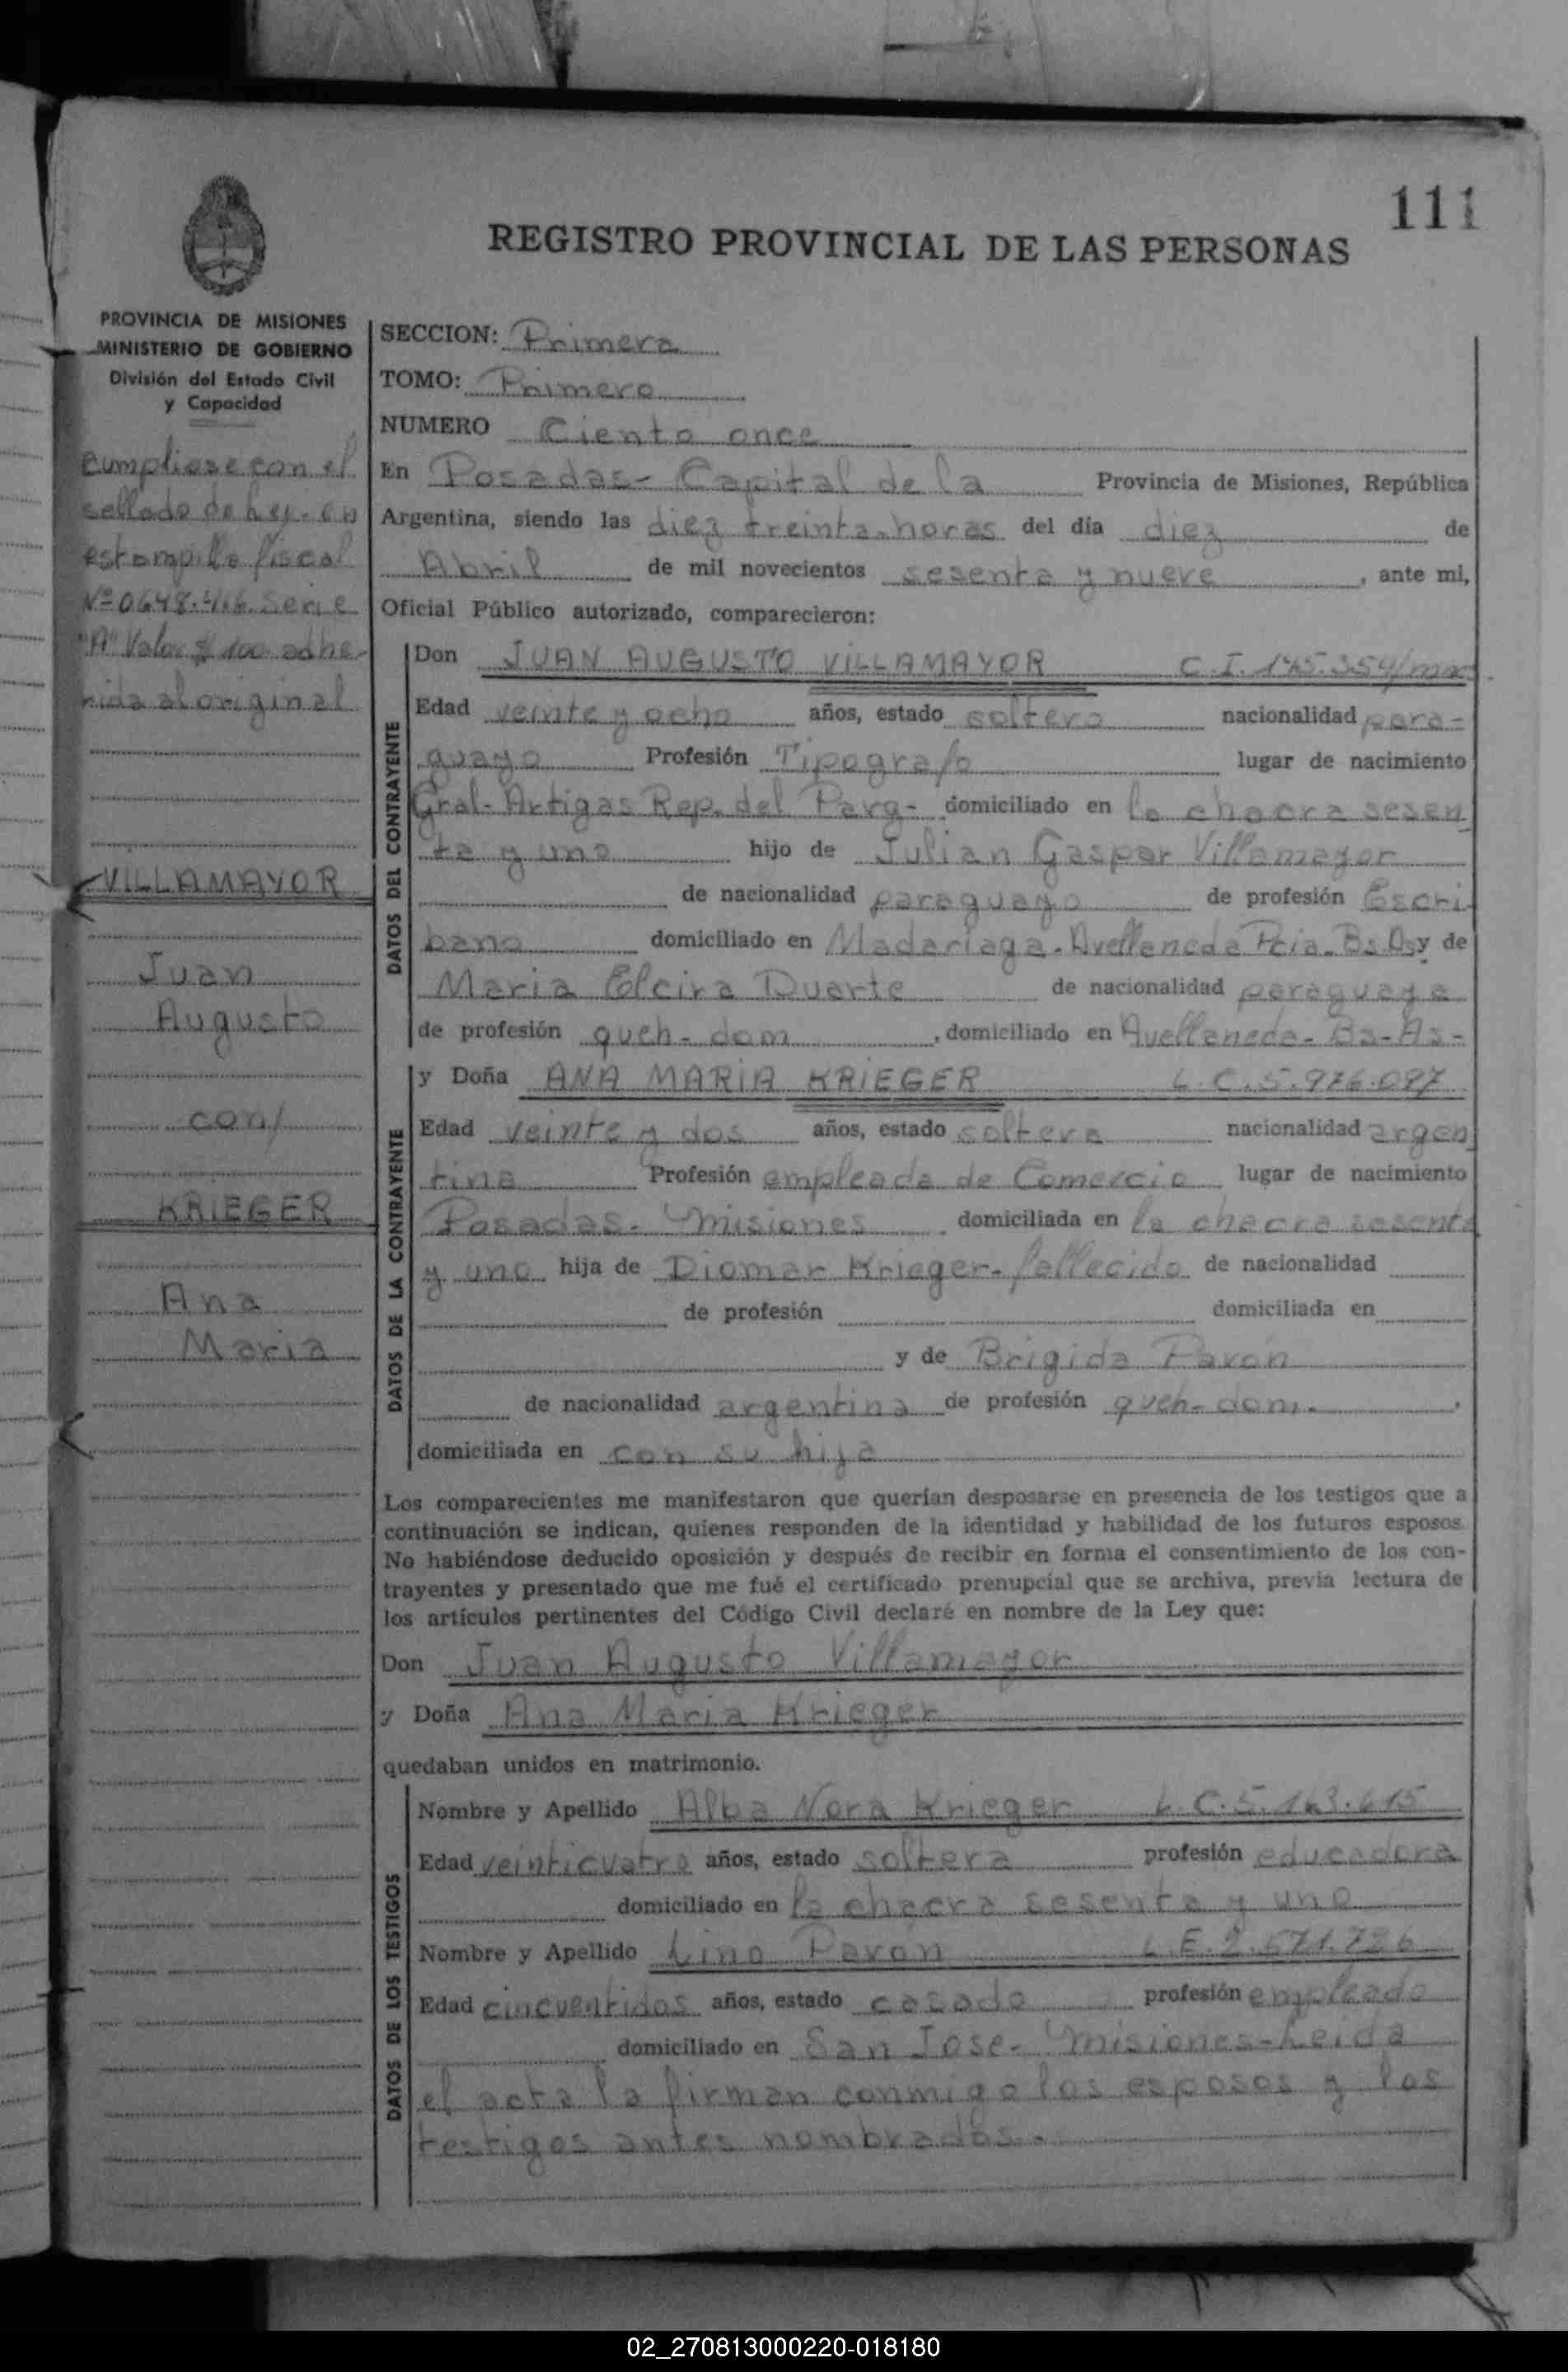 111
REGISTRO PROVINCIAL DE LAS PERSONAS
PROVINCIA DE MISIONES
MINISTERIO DE GOBIERNO
División del Estado Civil
y Capacidad
Cumpliose con el
sellado de ley. en
estampilla fiscal
Nº 0648.416 Serie
"A" Valor $ 100 adhe-
rida al original
VILLAMAYOR
Juan
Augusto
con/
KRIEGER
Ana
Maria
SECCION: Primera
TOMO: Primero
NUMERO Ciento once
En Posadas- Capital de la Provincia de Misiones, República
Argentina, siendo las diez treinta horas del día diez de
Abril de mil novecientos sesenta y nueve, ante mi,
Oficial Público autorizado, comparecieron:
DATOS DEL CONTRAYENTE
Don JUAN AUGUSTO VILLAMAYOR C.I. 145.354/mnes
Edad veinte y ocho años, estado soltero nacionalidad para-
guayo Profesión Tipografo lugar de nacimiento
Gral- Artigas Rep. del Parg- domiciliado en la chacra sesen
ta y uno hijo de Julian Gaspar Villamayor
de nacionalidad paraguayo de profesión Escri-
bano domiciliado en Madariaga- Avellaneda Pcia- Bs. As y de
Maria Elcira Duarte de nacionalidad paraguaya
de profesión queh- dom, domiciliado en Avellaneda- Bs- As-
DATOS DE LA CONTRAYENTE
y Doña ANA MARIA KRIEGER L.C. 5.976.097
Edad veinte y dos años, estado soltera nacionalidad argen
tina Profesión empleada de Comercio lugar de nacimiento
Posadas- Misiones domiciliada en la chacra sesenta
y uno hija de Diomar Krieger- fallecido de nacionalidad
de profesión domiciliada en
y de Brigida Pavón
de nacionalidad argentina de profesión queh- dom.,
domiciliada en con su hija
Los comparecientes me manifestaron que querían desposarse en presencia de los testigos que a
continuación se indican, quienes responden de la identidad y habilidad de los futuros esposos.
No habiéndose deducido oposición y después de recibir en forma el consentimiento de los con-
trayentes y presentado que me fué el certificado prenupcial que se archiva, previa lectura de
los artículos pertinentes del Código Civil declaré en nombre de la Ley que:
Don Juan Augusto Villamayor
y Doña Ana Maria Krieger
quedaban unidos en matrimonio.
DATOS DE LOS TESTIGOS
Nombre y Apellido Alba Nora Krieger L.C. 5.163.615
Edad veinticuatro años, estado soltera profesión educadora
domiciliado en la chacra sesenta y uno
Nombre y Apellido Lino Pavon L.E. 2.571.726
Edad cincuentidos años, estado casado profesión empleado
domiciliado en San Jose- Misiones- Leida
el acta la firman conmigo los esposos y los
testigos antes nombrados.
02_270813000220-018180